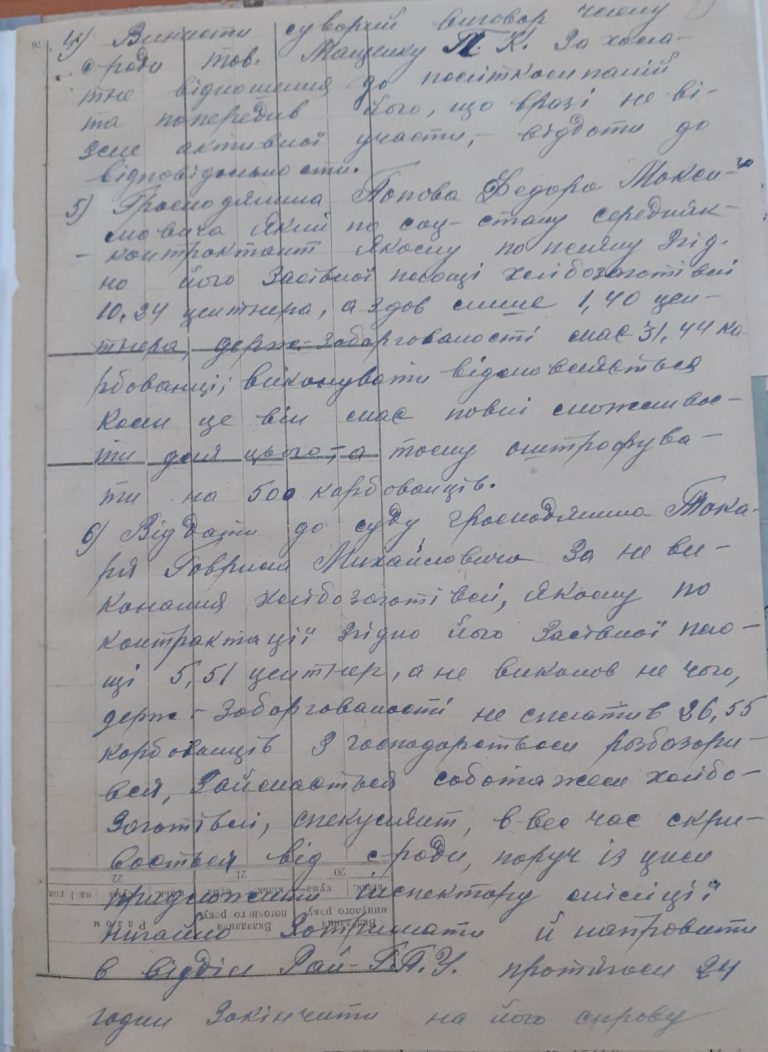 4) Винисти суворий виговор члену
с-ради тов. Мащенку П. К. за хала-
тне відношення до політкомпаній
та попередив його, що вразі не ві-
зме активної участи, – віддати до
відповідальности.
5) Громодянина Попова Федора Макси-
мовича який по соц-стану середняк-
– контрактант якому по плану згід-
но його засівної площі хлібозаготівлі
10,24 центнера, а здав лише 1,40 цен-
тнера, держ-заборгованості має 31,44 ка-
рбованці; виконувати відмовляється
коли це він має повні можливос-
ти для цього, – а тому оштрафува-
ти на 500 карбованців.
6) Віддати до суду громодянина Тока-
ря Гаврила Михайловича за не ви-
конання хлібозаготівлі, якому по
контрактації згідно його засівної пло-
щі 5,51 центнер, а не виконав не чого,
держ-заборгованості не сплатив 26,55
карбованців з господарством розбазари-
вся, займається саботажем хлібо-
заготівлі, спекулянт, в-вес час скри-
вається від с-ради, поруч із цим
предложити інспектору міліції
нигайно затримати й направити
в відділ Рай-Г.П.У. протягом 24
годин закінчити на його справу
20
21
22
сума
на 1 гол
Разом
Вкладання поточного року
минулого року